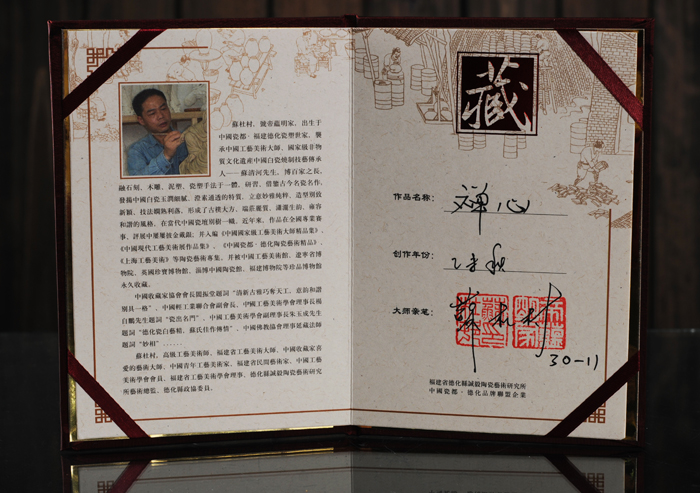 蘇杜村，號帝蘊明家，出生于
中國瓷都·福建德化瓷塑世家，襲
承中國工藝美術大師、國家級非物
質文化遺産中國白瓷燒制技藝傳承
人——蘇清河先生，博百家之長，
融石刻、木雕、泥塑、瓷塑手法于一體，研習、借鑒古今名瓷名作，
發揚中國白瓷玉潤細膩、澄素通透的特質，立意妙雅純粹、造型別致
新穎、技法嫻熟利落，形成了古樸大方、端莊麗質、瀟灑生動、雍容
和諧的風格，在當代中國瓷壇別樹一幟。近年來，作品在全國專業賽
事、評展中屢屢披金戴銀；并入編《中國國家級工藝美術大師精品集》、
《中國現代工藝美術展作品集》、《中國瓷都·德化陶瓷藝術精品》、
《上海工藝美術》等陶瓷藝術專集，并被中國工藝美術館、遼寧省博
物院、英國珍寶博物館、淄博中國陶瓷館、福建博物院等珍品博物館
永久收藏。
中國收藏家協會會長閻振堂題詞“清新古雅巧奪天工，意韵和諧
別具一格”，中國輕工業聯合會副會長、中國工藝美術學會理事長楊
自鵬先生題詞“瓷出名門”，中國工藝美術學會副理事長朱玉成先生
題詞“德化瓷白藝精，蘇氏佳作傳情”，中國佛教協會理事延藏法師
題詞“妙相”……
蘇杜村，高級工藝美術師、福建省工藝美術大師、中國收藏家喜
愛的藝術大師、中國青年工藝美術家、福建省民間藝術家，中國工藝
美術學會會員、福建省工藝美術學會理事、德化縣誠毅陶瓷藝術研究
所藝術總監、德化縣政協委員。
藏
作品名称：禅心
创作年份：乙未秋
大师亲笔：蘇杜村
30-11
福建省德化縣誠毅陶瓷藝術研究所
中國瓷都·德化品牌聯盟企業